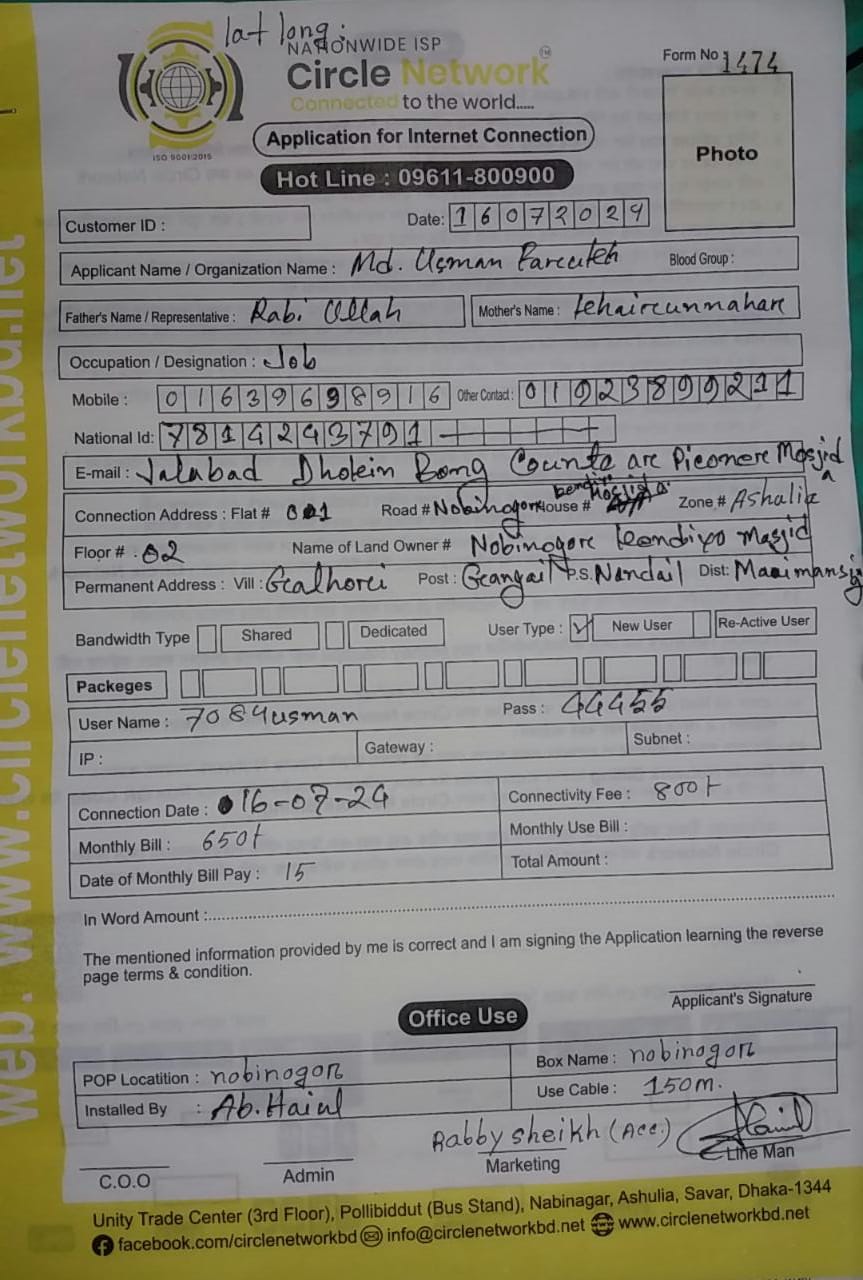 lat long.
NATIONWIDE ISP
Circle Network
Connected to the world.....
Form No 1474
ISO 9001:2015
Application for Internet Connection
Photo
Hot Line : 09611-800900
Customer ID :
Date: 16072024
Applicant Name / Organization Name : Md. Usman Blood Group :
Father's Name / Representative : Rabi Ullah Mother's Name :
Occupation / Designation : Job
Mobile : 01639698916 Other Contact : 01923899211
National Id: 7814243791
E-mail : Jalabad Bong are Mosjid
Connection Address : Flat # 001 Road # Nobinogore House # Zone # Ashalia
Floor # . 02 Name of Land Owner # Nobinogore masjid
Permanent Address : Vill : Post : P.S. Nandail Dist:
Bandwidth Type Shared Dedicated User Type : ✓ New User Re-Active User
Packeges
User Name : 7084usman Pass : 44455
IP : Gateway : Subnet :
Connection Date : 16-07-24 Connectivity Fee : 800t
Monthly Bill : 650t Monthly Use Bill :
Date of Monthly Bill Pay : 15 Total Amount :
In Word Amount :
The mentioned information provided by me is correct and I am signing the Application learning the reverse
page terms & condition.
Applicant's Signature
Office Use
POP Locatition : nobinogor Box Name : nobinogor
Installed By : Ab. Use Cable : 150m.
Rabby sheikh (Acc.)
C.O.O Admin Marketing Line Man
Unity Trade Center (3rd Floor), Pollibiddut (Bus Stand), Nabinagar, Ashulia, Savar, Dhaka-1344
facebook.com/circlenetworkbd info@circlenetworkbd.net www.circlenetworkbd.net
web: www.circlenetworkbd.net